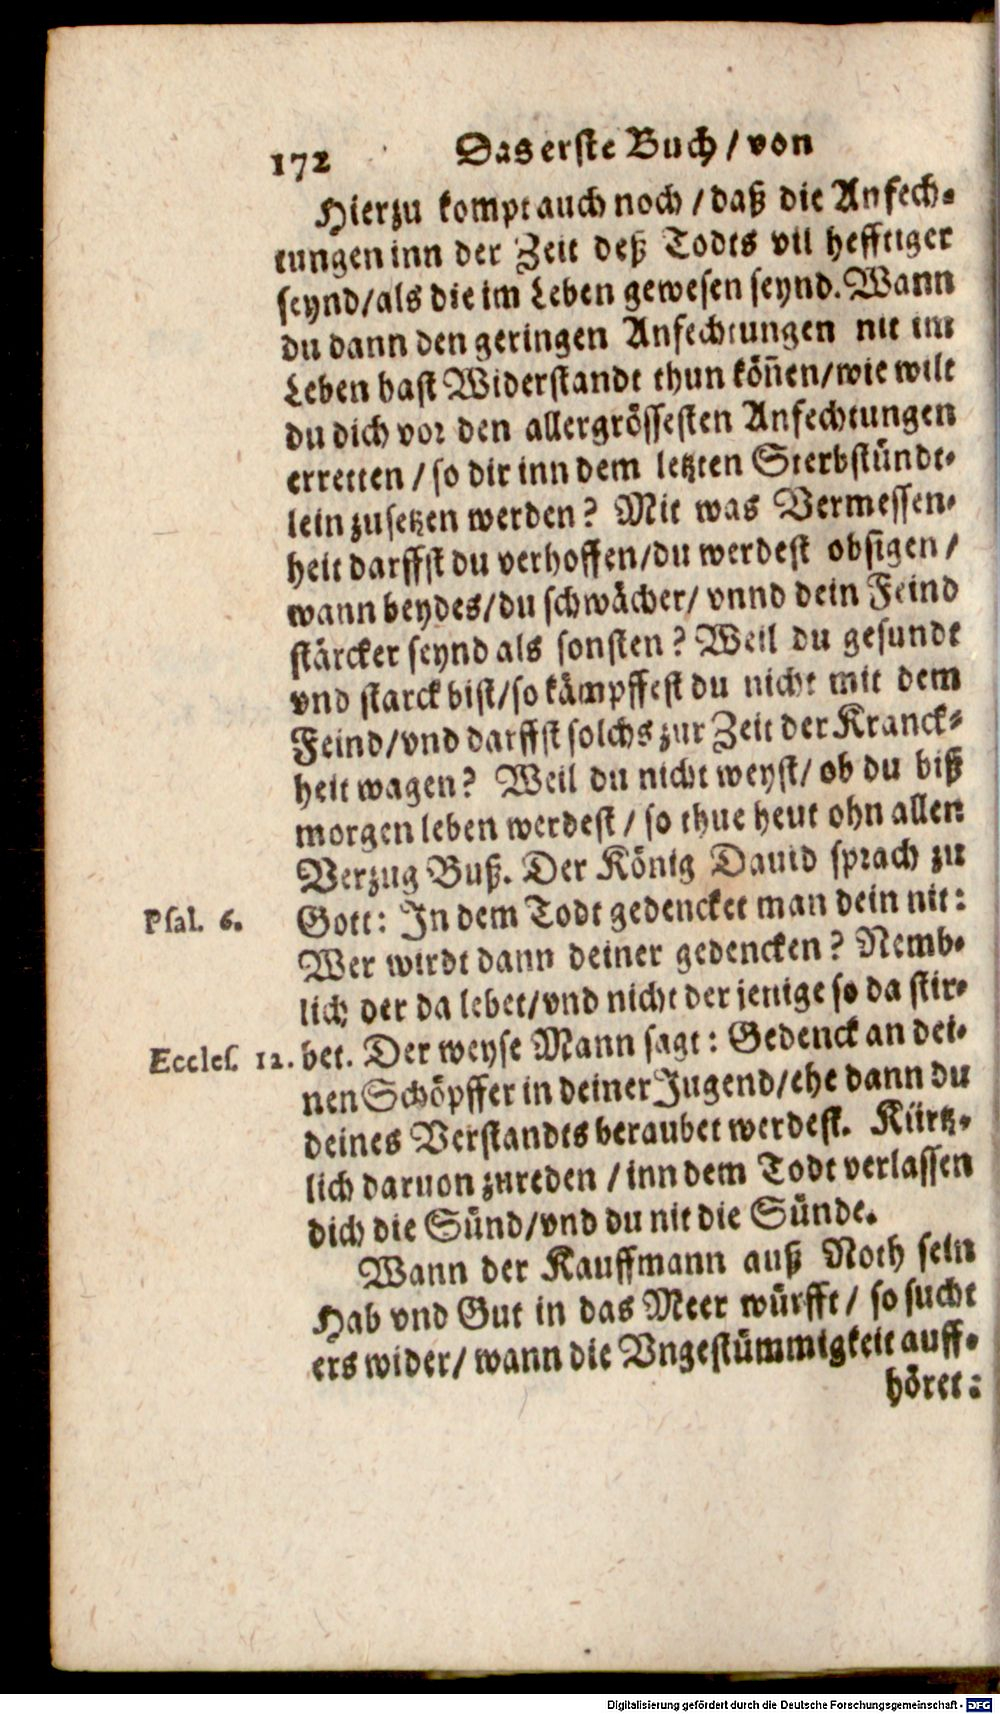 172 Das erste Buch / von
Hierzu kompt auch noch / daß die Anfech-
tungen inn der Zeit deß Todts vil hefftiger
seynd/als die im Leben gewesen seynd. Wann
du dann den geringen Anfechtungen nit im
Leben hast Widerstandt thun köñen/wie wilt
du dich vor den allergrössesten Anfechtungen
erretten / so dir inn dem letzten Sterbstündt-
lein zusetzen werden? Mit was Vermessen-
heit darffst du verhoffen/du werdest obsigen /
wann beydes/du schwächer/ vnnd dein Feind
stärcker seynd als sonsten? Weil du gesundt
vnd starck bist/so kämpffest du nicht mit dem
Feind/vnd darffst solchs zur Zeit der Kranck-
heit wagen? Weil du nicht weyst/ ob du biß
morgen leben werdest / so thue heut ohn allen
Verzug Buß. Der König Dauid sprach zu
Psal. 6. Gott: In dem Todt gedencket man dein nit:
Wer wirdt dann deiner gedencken? Nemb-
lich der da lebet/vnd nicht der jenige so da stir-
Eccles. 12. bet. Der weyse Mann sagt: Gedenck an dei-
nen Schöpffer in deiner Jugend/ehe dann du
deines Verstandts beraubet werdest. Kürtz-
lich daruon zureden / inn dem Todt verlassen
dich die Sünd/vnd du nit die Sünde.
Wann der Kauffmann auß Noth sein
Hab vnd Gut in das Meer würfft / so sucht
ers wider/ wann die Vngestümmigkeit auff-
höret:
Digitalisierung gefördert durch die Deutsche Forschungsgemeinschaft - DFG